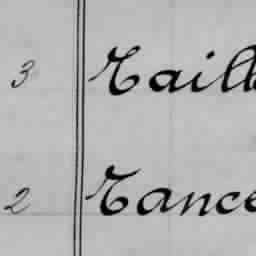 3 Taill
2 Tance